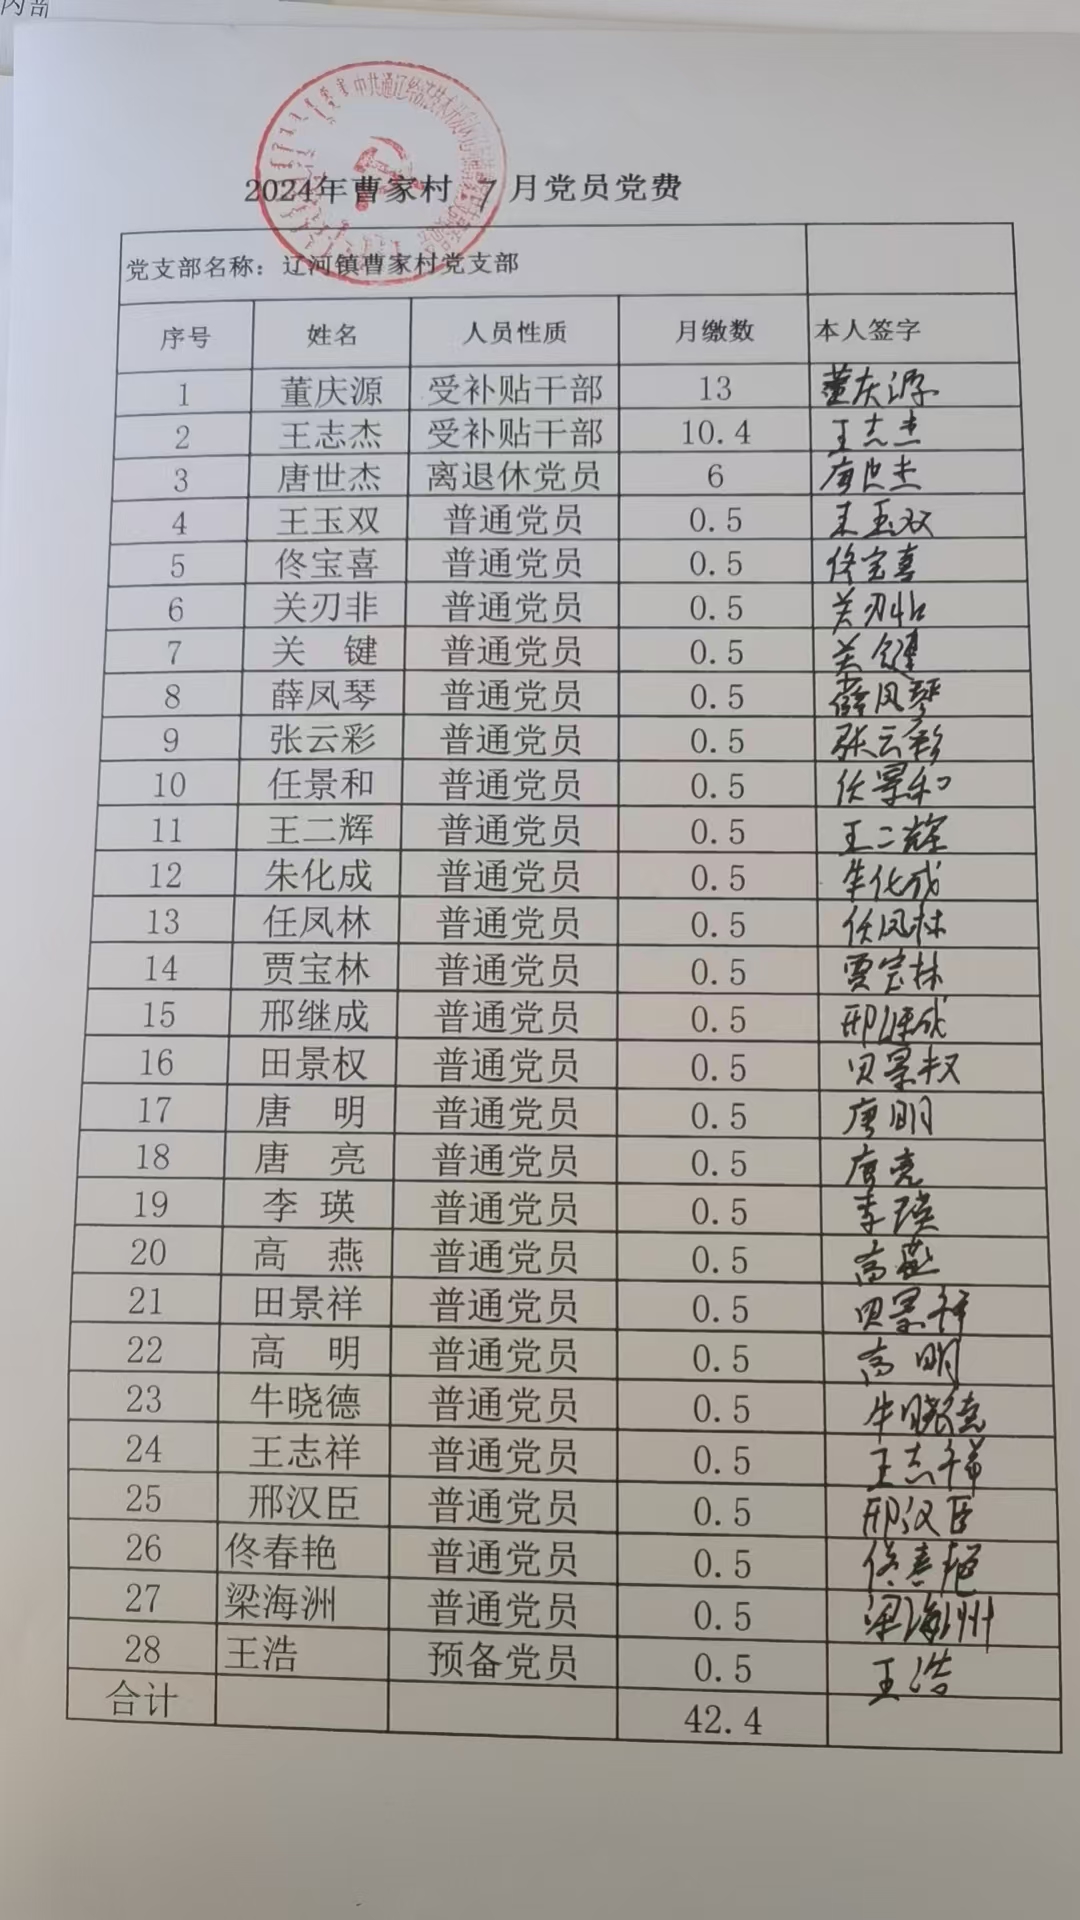 内部
2024年曹家村 7 月党员党费
党支部名称：辽河镇曹家村党支部
序号 姓名 人员性质 月缴数 本人签字
1 董庆源 受补贴干部 13 董庆源
2 王志杰 受补贴干部 10.4 王志杰
3 唐世杰 离退休党员 6 唐世杰
4 王玉双 普通党员 0.5 王玉双
5 佟宝喜 普通党员 0.5 佟宝喜
6 关刃非 普通党员 0.5 关刃
7 关 键 普通党员 0.5 关键
8 薛凤琴 普通党员 0.5 薛凤琴
9 张云彩 普通党员 0.5 张云彩
10 任景和 普通党员 0.5 任景和
11 王二辉 普通党员 0.5 王二辉
12 朱化成 普通党员 0.5 朱化成
13 任凤林 普通党员 0.5 任凤林
14 贾宝林 普通党员 0.5 贾宝林
15 邢继成 普通党员 0.5 邢继成
16 田景权 普通党员 0.5 景权
17 唐 明 普通党员 0.5 唐明
18 唐 亮 普通党员 0.5 唐亮
19 李 瑛 普通党员 0.5 李瑛
20 高 燕 普通党员 0.5 高燕
21 田景祥 普通党员 0.5 景祥
22 高 明 普通党员 0.5 高明
23 牛晓德 普通党员 0.5 牛晓德
24 王志祥 普通党员 0.5 王志祥
25 邢汉臣 普通党员 0.5 邢汉臣
26 佟春艳 普通党员 0.5 佟春艳
27 梁海洲 普通党员 0.5 梁海州
28 王浩 预备党员 0.5 王浩
合计 42.4